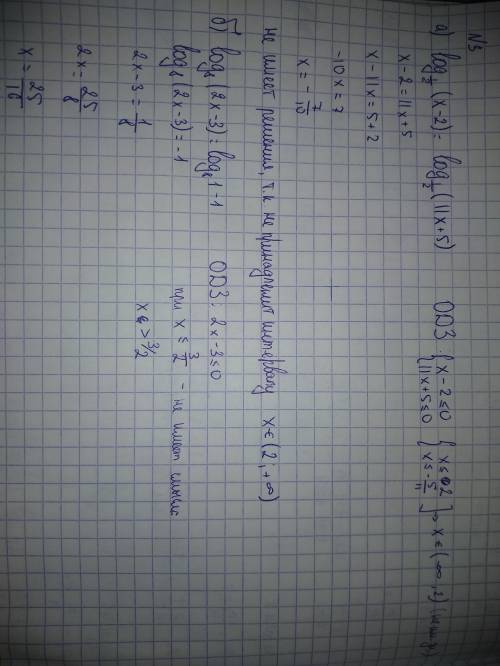 N3
а) log½ (x-2) = log½ (11x+5)
ОДЗ: { x-2≤0 { x≤2
{ 11x+5≤0 { x≤-5/11 ] ⇒ x ∈ (-∞;2)
x-2 = 11x+5
x-11x = 5+2
-10x = 7
x = -7/10
не имеет решения, т.к не принадлежит интервалу x∈(2;+∞)
б) log₈ (2x-3) = log₈ 1 -1
ОДЗ: 2x-3≤0
log₈ (2x-3) = -1
при x ≤ 3/2 - не имеет смысла
2x-3 = 1/8
x > 3/2
2x = 25/8
x = 25/16